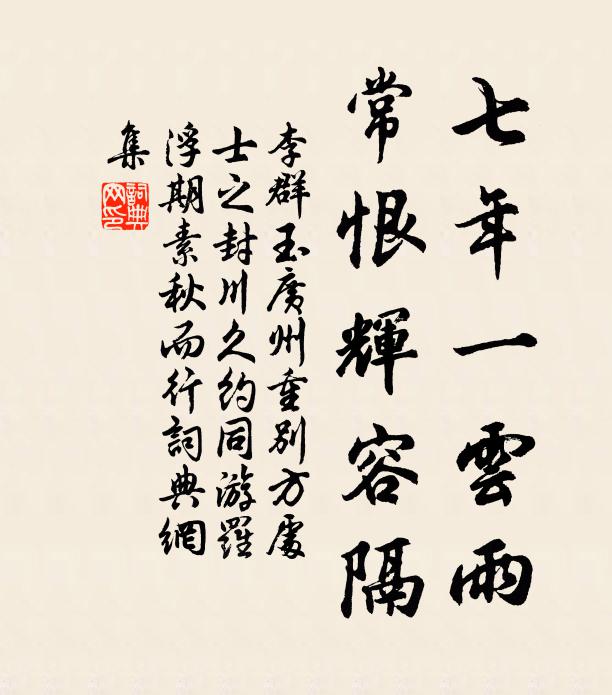 七年一雲雨
常恨輝容隔
李群玉廣州重別方處
士之封川久約同游羅
浮期素秋而行詞典網
集
詞典
网印